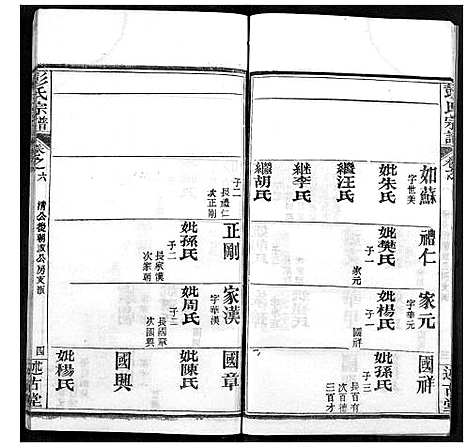 彭氏宗譜
如蘇
字世美
妣朱氏
繼汪氏
继李氏
繼胡氏
子二
長禮仁
次正剛
禮仁
妣樊氏
子一
家元
正剛
妣孫氏
子二
長家漢
次家朝
家元
字華元
妣楊氏
子一
國祥
家漢
字華漢
妣周氏
子二
長國章
次國興
國祥
妣孫氏
子三
長百有
次百德
三百才
國章
妣陳氏
國興
妣楊氏
述古堂
彭氏宗譜
卷之六
清公後朝
公房支派
四
述古堂